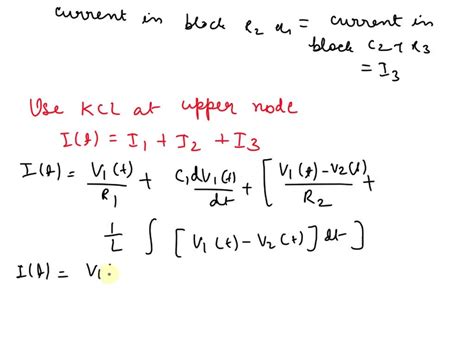 current in block R2 x1 = current in
block C2 x R3
= I3
Use KCL at upper node
I(t) = I1 + I2 + I3
I(t) = V1(t)/R1 + C1 dV1(t)/dt + [ V1(t) - V2(t)/R2 +
1/L ∫ [ V1(t) - V2(t) ] dt ]
I(t) = V1